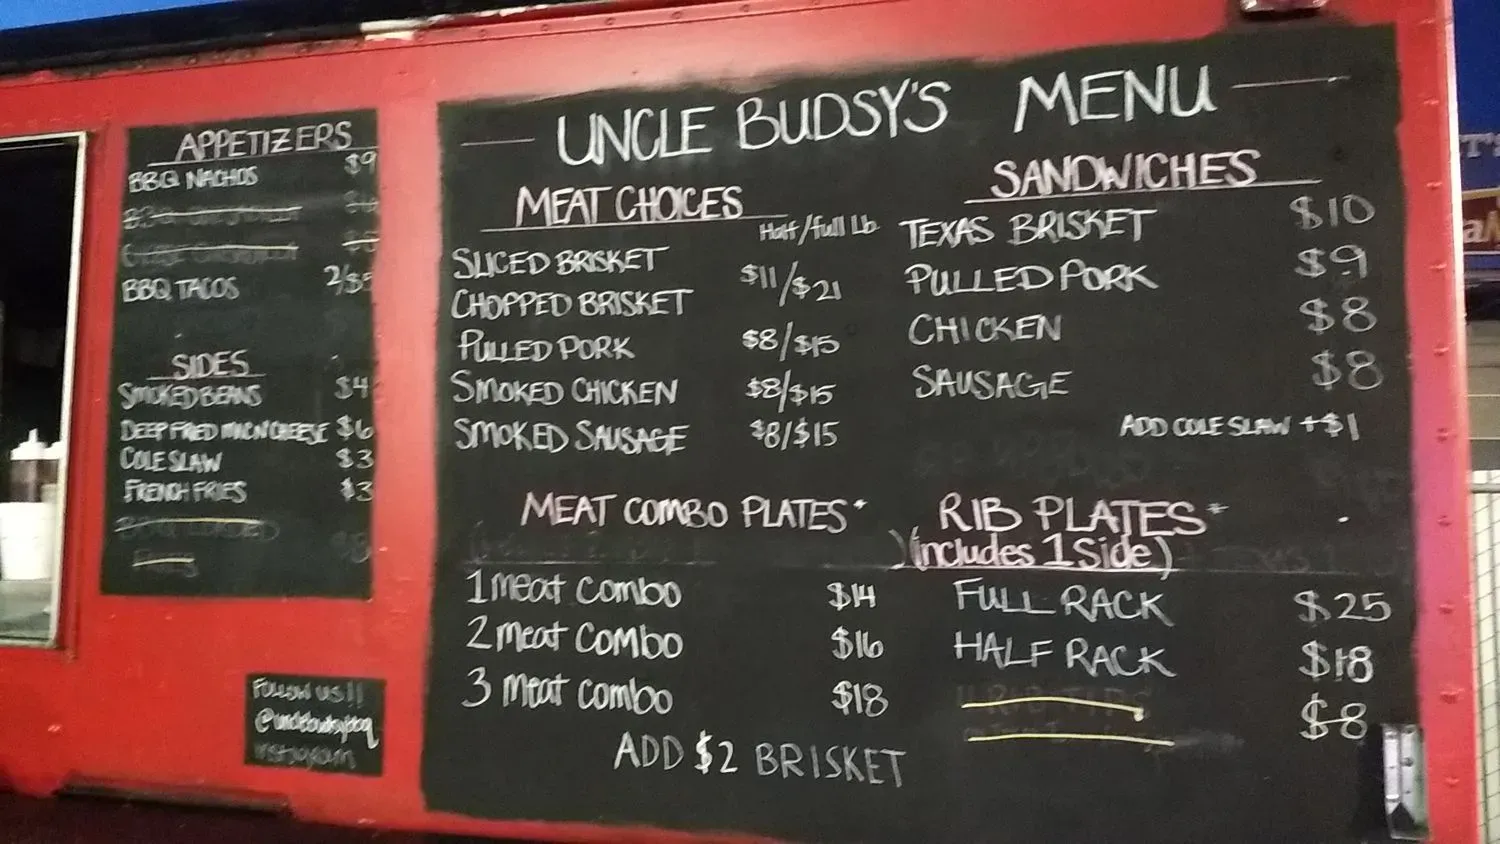 APPETIZERS
BBQ NACHOS $9
BBQ TACOS 2/$5
SIDES
SMOKED BEANS $4
DEEP FRIED MAC N CHEESE $6
COLE SLAW $3
FRENCH FRIES $3
FOLLOW US!!
@unclebudsybbq
instagram
UNCLE BUDSY'S MENU
MEAT CHOICES
Half/full Lb
SLICED BRISKET
CHOPPED BRISKET $11/$21
PULLED PORK $8/$15
SMOKED CHICKEN $8/$15
SMOKED SAUSAGE $8/$15
SANDWICHES
TEXAS BRISKET $10
PULLED PORK $9
CHICKEN $8
SAUSAGE $8
ADD COLE SLAW +$1
MEAT COMBO PLATES*
1 meat combo $14
2 meat combo $16
3 meat combo $18
ADD $2 BRISKET
RIB PLATES*
(includes 1 Side)
FULL RACK $25
HALF RACK $18
$8